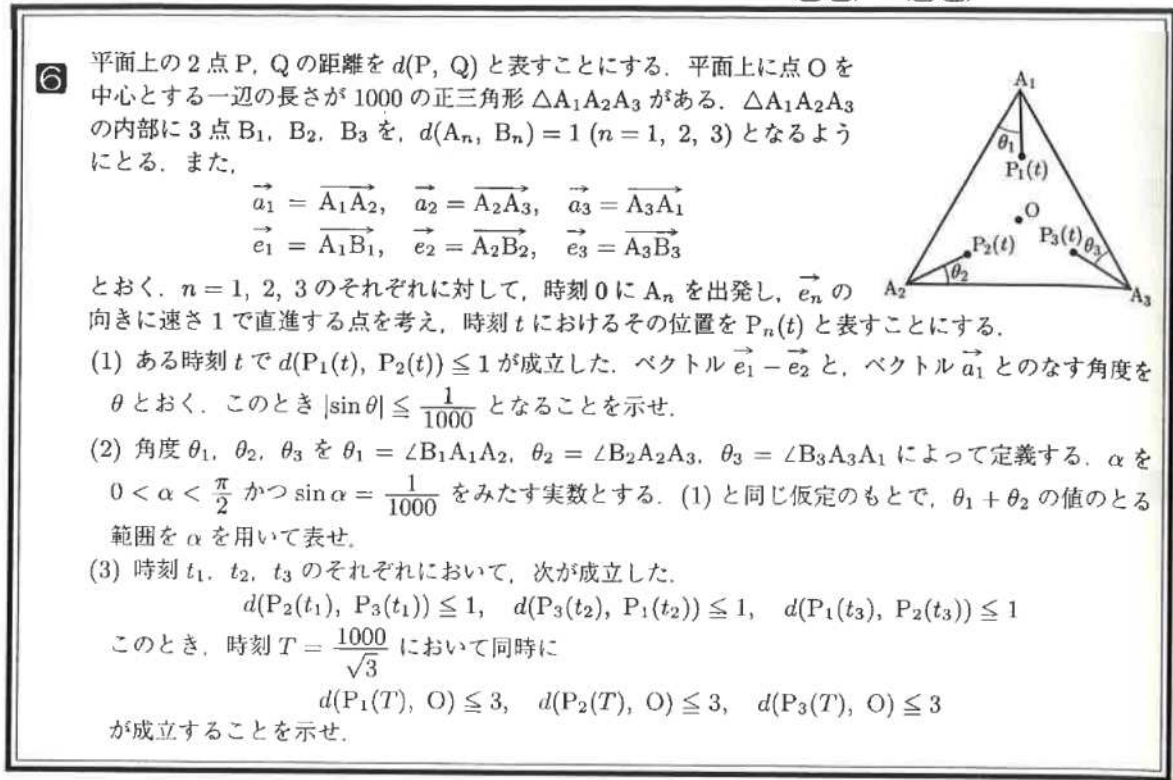 6
平面上の2点P, Qの距離を d(P, Q) と表すことにする. 平面上に点Oを
中心とする一辺の長さが 1000 の正三角形 △A₁A₂A₃ がある. △A₁A₂A₃
の内部に3点 B₁, B₂, B₃ を, d(Aₙ, Bₙ) = 1 (n = 1, 2, 3) となるよう
にとる. また,
a₁→ = A₁A₂→, a₂→ = A₂A₃→, a₃→ = A₃A₁→
e₁→ = A₁B₁→, e₂→ = A₂B₂→, e₃→ = A₃B₃→
とおく. n = 1, 2, 3 のそれぞれに対して, 時刻 0 に Aₙ を出発し, eₙ→ の
向きに速さ 1 で直進する点を考え, 時刻 t におけるその位置を Pₙ(t) と表すことにする.
(1) ある時刻 t で d(P₁(t), P₂(t)) ≦ 1 が成立した. ベクトル e₁→ − e₂→ と, ベクトル a₁→ とのなす角度を
θ とおく. このとき |sin θ| ≦ 1/1000 となることを示せ.
(2) 角度 θ₁, θ₂, θ₃ を θ₁ = ∠B₁A₁A₂, θ₂ = ∠B₂A₂A₃, θ₃ = ∠B₃A₃A₁ によって定義する. α を
0 < α < π/2 かつ sin α = 1/1000 をみたす実数とする. (1) と同じ仮定のもとで, θ₁ + θ₂ の値のとる
範囲を α を用いて表せ.
(3) 時刻 t₁, t₂, t₃ のそれぞれにおいて, 次が成立した.
d(P₂(t₁), P₃(t₁)) ≦ 1, d(P₃(t₂), P₁(t₂)) ≦ 1, d(P₁(t₃), P₂(t₃)) ≦ 1
このとき, 時刻 T = 1000/√3 において同時に
d(P₁(T), O) ≦ 3, d(P₂(T), O) ≦ 3, d(P₃(T), O) ≦ 3
が成立することを示せ.
A₁
θ₁
P₁(t)
O
P₂(t)
P₃(t)
θ₃
A₂
θ₂
A₃